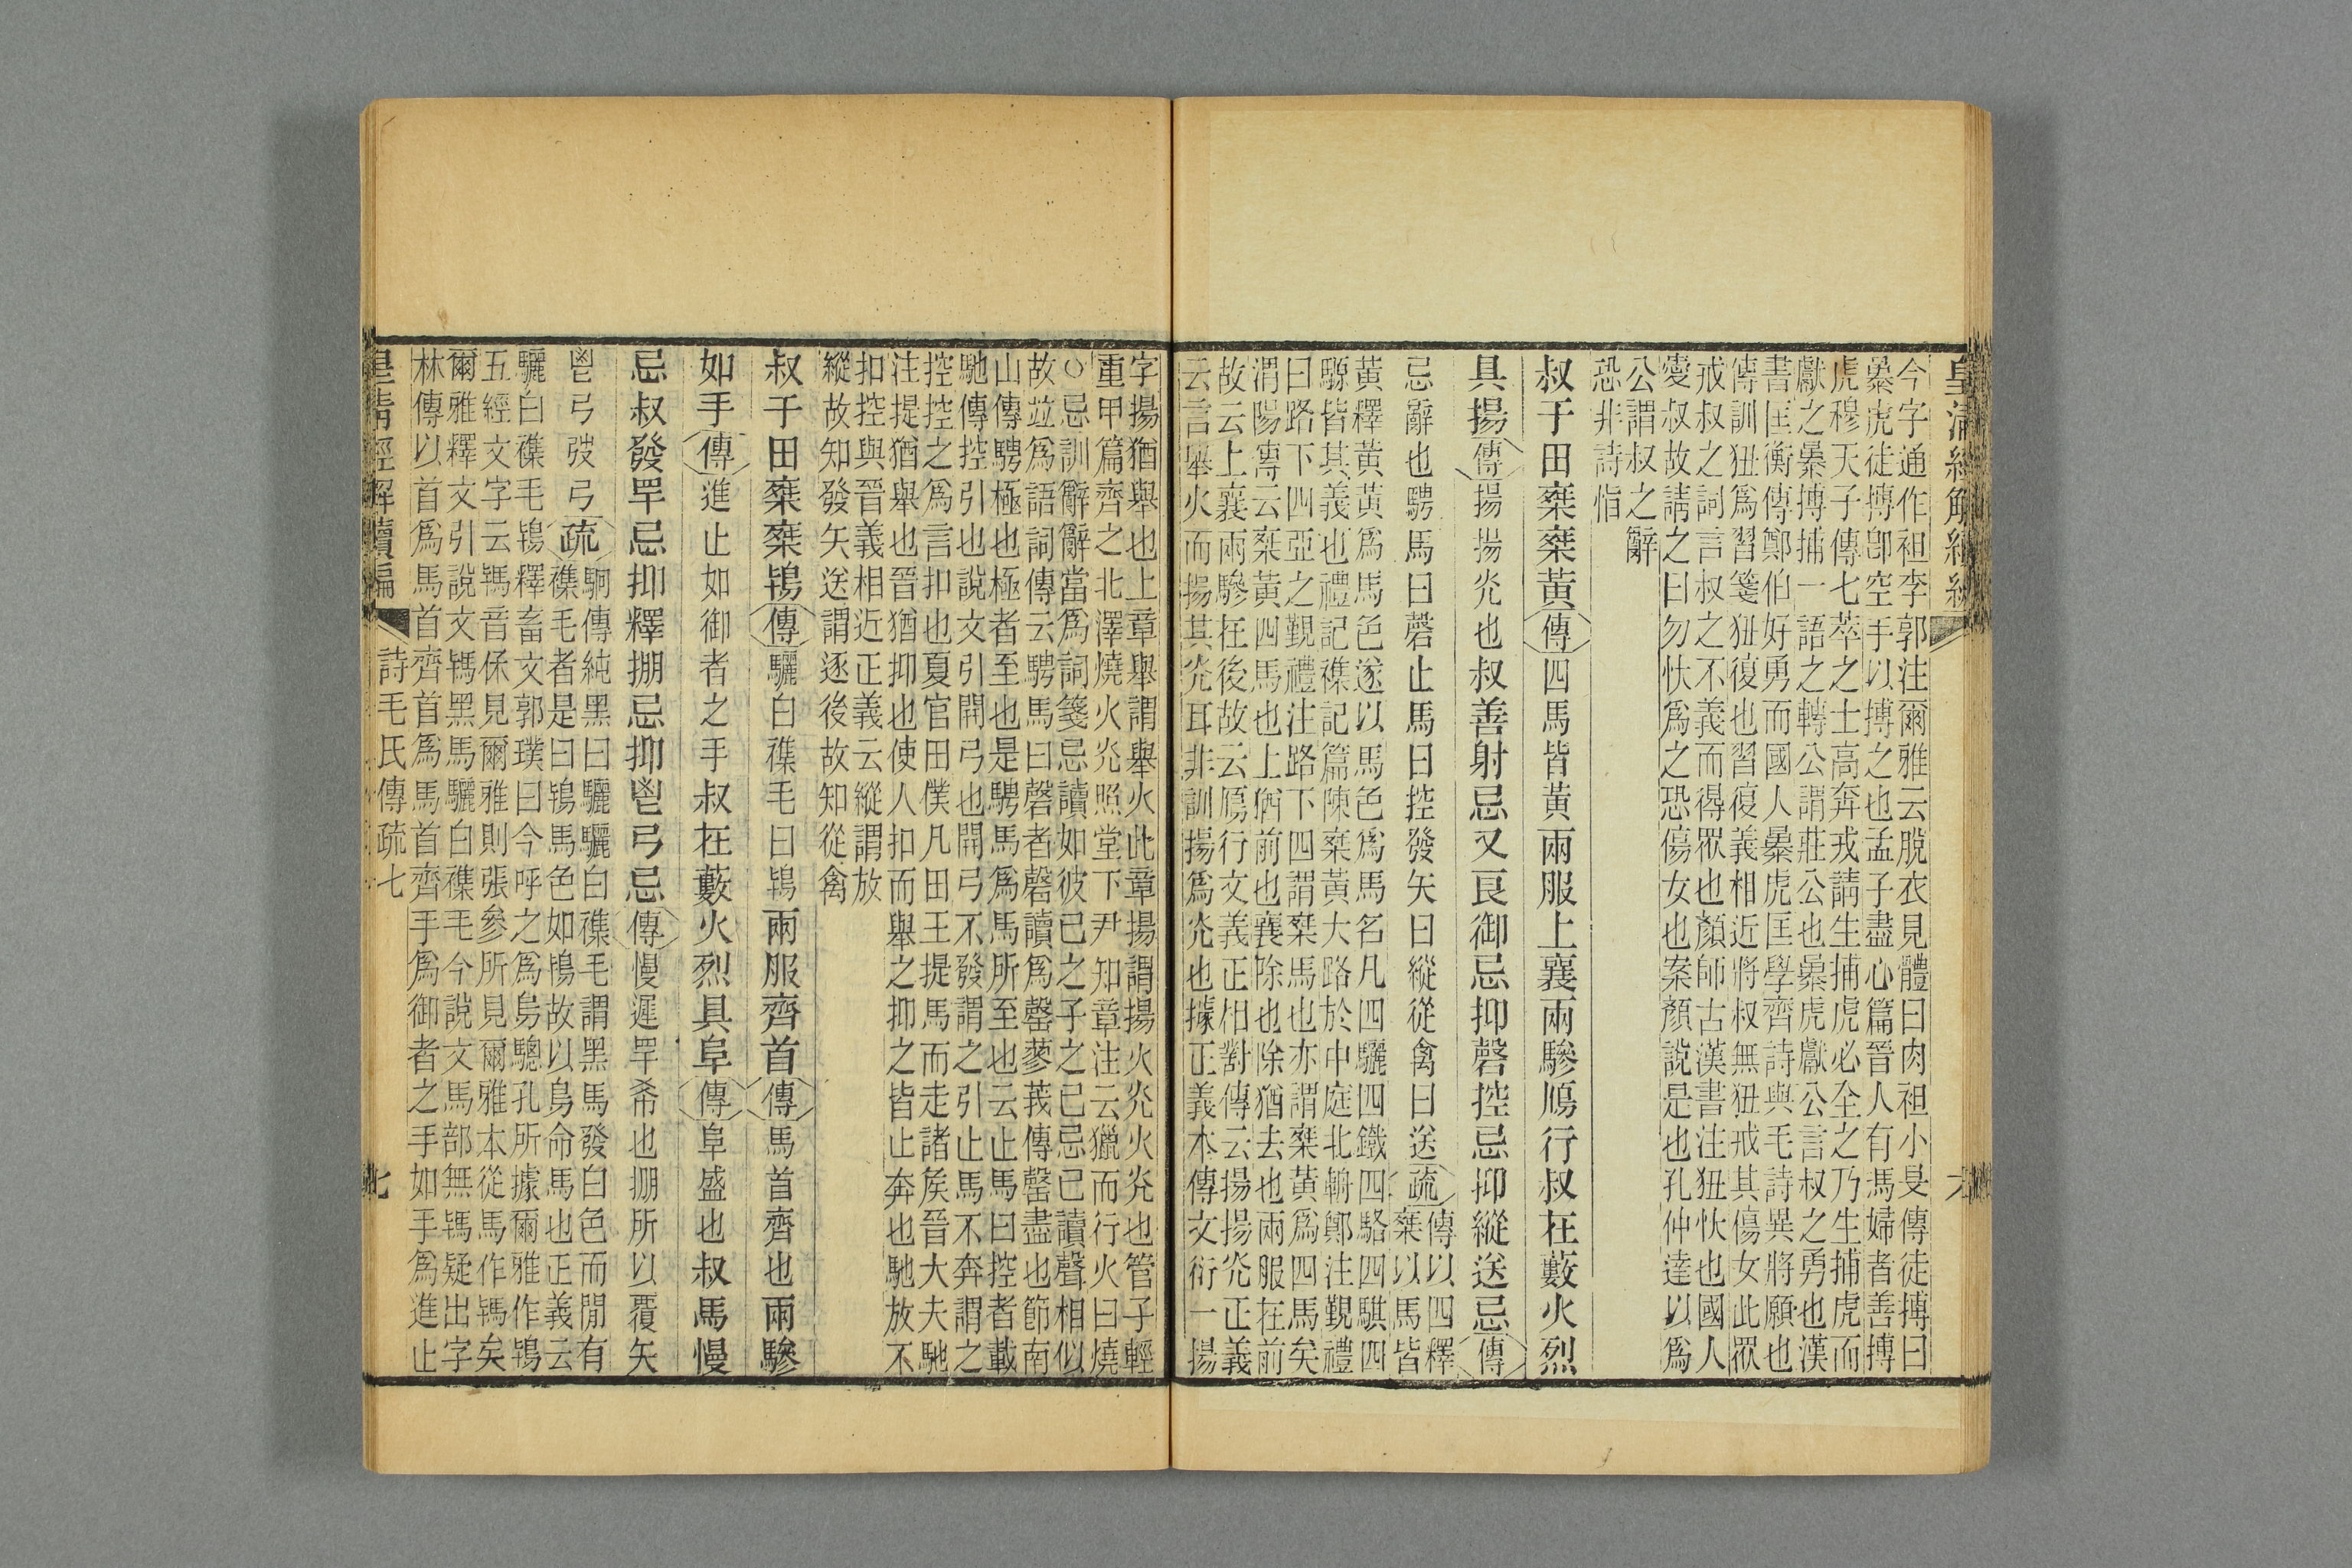 今字通作袒李郭注爾雅云脫衣見體曰肉袒小旻傳徒搏曰
暴虎徒搏卽空手以搏之也孟子盡心篇晉人有馮婦者善搏
虎穆天子傳七萃之士高奔戎請生捕虎必全之乃生捕虎而
獻之暴搏捕一語之轉公謂莊公也暴虎獻公言叔之勇也漢
書匡衡傳鄭伯好勇而國人暴虎匡學齊詩與毛詩異將願也
傳訓狃爲習箋狃復也習復義相近將叔無狃戒其傷女此眾
戒叔之詞言叔之不義而得眾也顏師古漢書注狃忕也國人
愛叔故請之曰勿忕爲之恐傷女也案顏說是也孔仲達以爲
公謂叔之辭
恐非詩恉
叔于田椉椉黃傳四馬皆黃兩服上襄兩驂鴈行叔在藪火烈
具揚傳揚揚光也叔善射忌又良御忌抑磬控忌抑縱送忌傳
忌辭也騁馬曰磬止馬曰控發矢曰縱從禽曰送疏傳以四釋
椉以馬皆
黃釋黃黃爲馬色遂以馬色爲馬名凡四驪四鐵四駱四騏四
騵皆其義也禮記襍記篇陳椉黃大路於中庭北輈鄭注覲禮
曰路下四亞之覲禮注路下四謂椉馬也亦謂椉黃爲四馬矣
渭陽傳云椉黃四馬也上猶前也襄除也除猶去也兩服在前
故云上襄兩驂在後故云鴈行文義正相對傳云揚揚光正義
云言舉火而揚其光耳非訓揚爲光也據正義本傳文衍一揚
字揚猶舉也上章舉謂舉火此章揚謂揚火光火光也管子輕
重甲篇齊之北澤燒火光照堂下尹知章注云獵而行火曰燒
○忌訓辭辭當爲詞箋忌讀如彼己之子之己忌己讀聲相似
故竝爲語詞傳云騁馬曰磬者磬讀爲罄蓼莪傳罄盡也節南
山傳騁極也極者至也是騁馬爲馬所至也云止馬曰控者載
馳傳控引也說文引開弓也開弓不發謂之引止馬不奔謂之
控控之爲言扣也夏官田僕凡田王提馬而走諸矦晉大夫馳
注提猶舉也晉猶抑也使人扣而舉之抑之皆止奔也馳放不
扣控與晉義相近正義云縱謂放
縱故知發矢送謂逐後故知從禽
叔于田椉椉鴇傳驪白襍毛曰鴇兩服齊首傳馬首齊也兩驂
如手傳進止如御者之手叔在藪火烈具阜傳阜盛也叔馬慢
忌叔發罕忌抑釋掤忌抑鬯弓忌傳慢遲罕希也掤所以覆矢
鬯弓弢弓疏駉傳純黑曰驪驪白襍毛謂黑馬發白色而閒有
襍毛者是曰鴇馬色如鴇故以鳥命馬也正義云
驪白襍毛鴇釋畜文郭璞曰今呼之爲烏驄孔所據爾雅作鴇
五經文字云䭋音保見爾雅則張參所見爾雅本從馬作䭋矣
爾雅釋文引說文䭋黑馬驪白襍毛今說文馬部無䭋疑出字
林傳以首爲馬首齊首爲馬首齊手爲御者之手如手爲進止
詩毛氏傳疏七